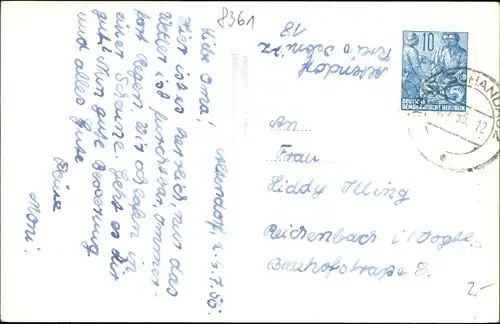 8361
Altendorf, d. 4.7.56.
Liebe Oma!
Hier ist es herrlich, nur das
Wetter ist furchtbar, immer-
fort Regen. Wir schlafen in
einer Scheune. Geht es Dir
gut? Nun gute Besserung
und alles Gute
Deine
Moni.
Altendorf
Kreis Sebnitz
18
10
DEUTSCHE
DEMOKRATISCHE REPUBLIK
An
Frau
Liddy Illing
Reichenbach i/Vogtl.
Bahnhofstrasse 8.
2.-